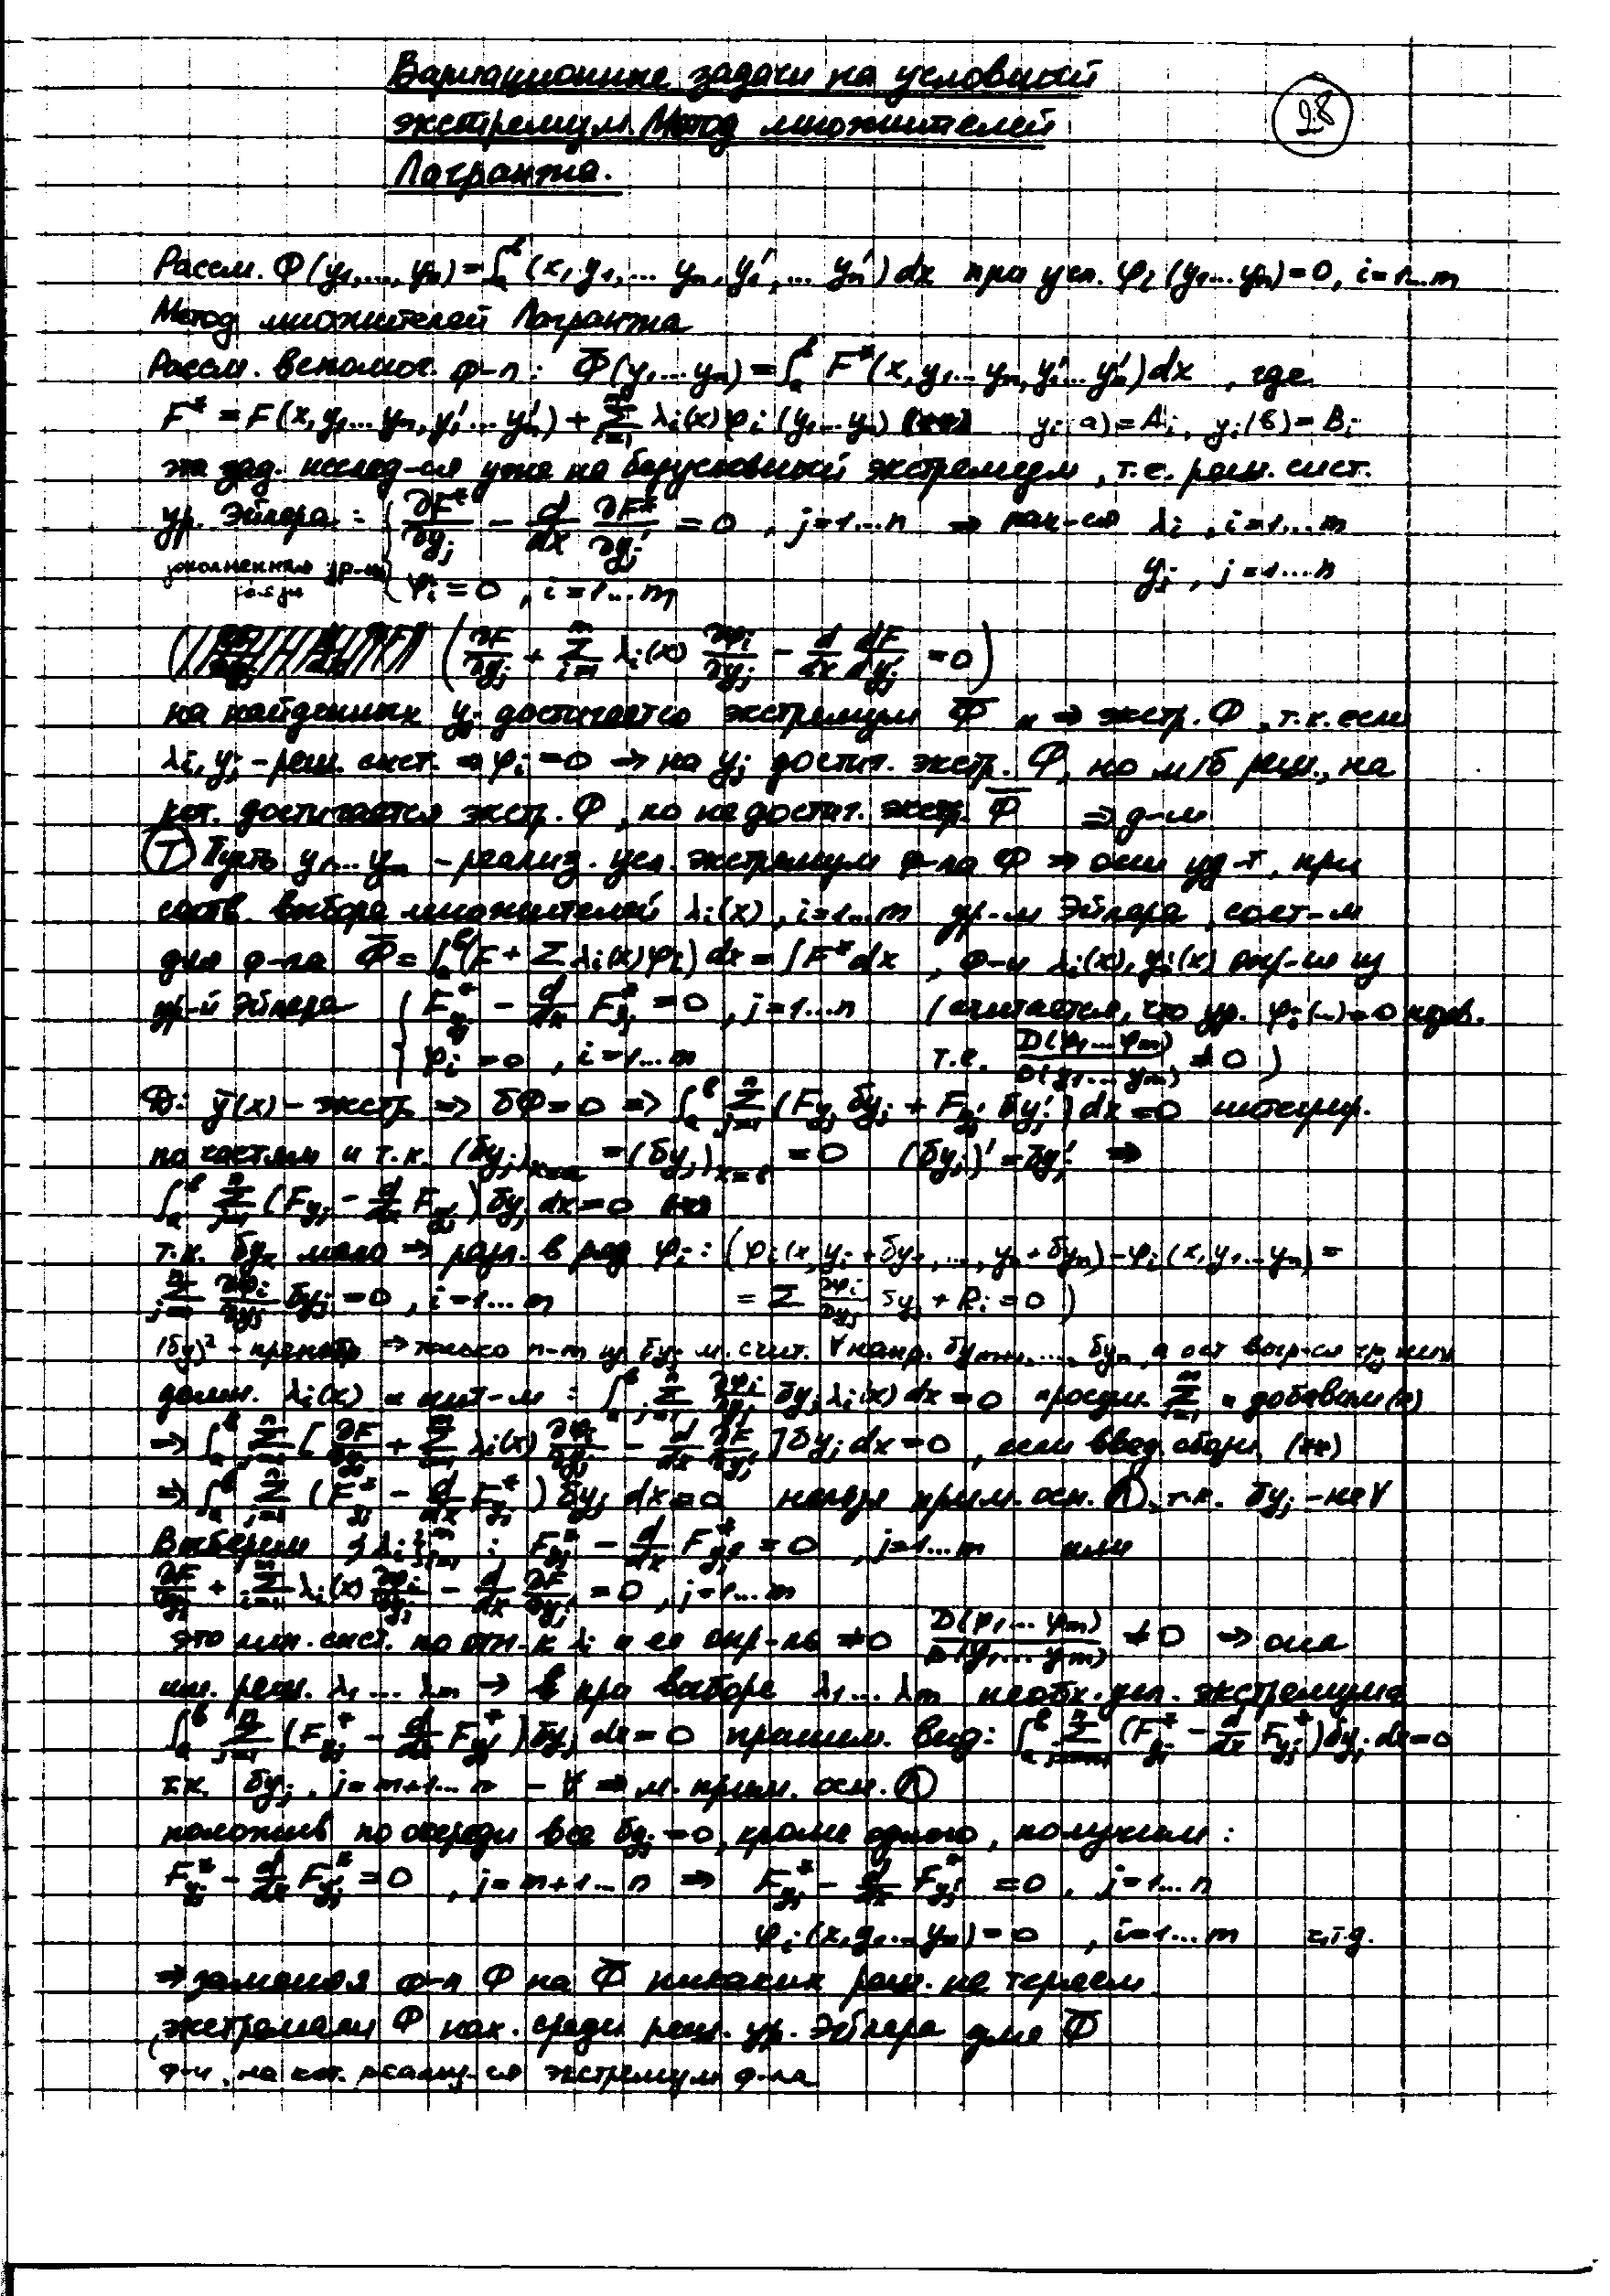 Вариационные задачи на условный
экстремум. Метод множителей
Лагранжа.
28
Рассм. Φ(y₁,..., yₙ) = ∫ₐᵇ (x, y₁,... yₙ, y₁',... yₙ') dx при усл. φᵢ(y₁... yₙ) = 0, i=1...m
Метод множителей Лагранжа
Рассм. вспомог. ф-л: Φ̄(y₁... yₙ) = ∫ₐᵇ F*(x, y₁... yₙ, y₁'... yₙ') dx , где
F* = F(x, y₁... yₙ, y₁'... yₙ') + Σᵢ₌₁ᵐ λᵢ(x) φᵢ(y₁... yₙ) (**) yⱼ(a) = Aⱼ, yⱼ(b) = Bⱼ
эта зад. исслед-ся уже на безусловный экстремум, т.е. реш. сист.
ур. Эйлера: { ∂F*/∂yⱼ - d/dx ∂F*/∂yⱼ' = 0 , j=1...n ⇒ нах-ся λᵢ , i=1...m
дополненная ур-ми связи { φᵢ = 0 , i=1...m yⱼ , j=1...n
( ∂F/∂yⱼ + Σᵢ₌₁ᵐ λᵢ(x) ∂φᵢ/∂yⱼ - d/dx dF/dyⱼ' = 0 )
на найденных yⱼ достигается экстремум Φ̄ и ⇒ экстр. Φ , т.к. если
λᵢ, yⱼ - реш. сист. ⇒ φᵢ = 0 ⇒ на yⱼ достиг. экстр. Φ, но м/б реш., на
кот. достигается экстр. Φ , но не достиг. экстр. Φ̄ ⇒ д-м
(Т) Пусть y₁... yₙ - реализ. усл. экстремум ф-ла Φ ⇒ они уд-т, при
соотв. выборе множителей λᵢ(x), i=1...m ур-м Эйлера, сост-м
для ф-ла Φ̄ = ∫ₐᵇ (F + Σ λᵢ(x) φᵢ) dx = ∫ F* dx , ф-и λᵢ(x), yᵢ(x) опр-ся из
ур-й Эйлера { F*_yⱼ - d/dx F*_yⱼ' = 0 , j=1...n (считается, что ур. φᵢ(...) = 0 незав.
{ φᵢ = 0 , i=1...m т.е. D(φ₁... φₘ)/D(y₁... yₘ) ≠ 0 )
Д: ȳ(x) - экстр. ⇒ δΦ = 0 ⇒ ∫ₐᵇ Σⱼ₌₁ⁿ (F_yⱼ δyⱼ + F_yⱼ' δyⱼ') dx = 0 интегрир.
по частям и т.к. (δyⱼ)ₓ₌ₐ = (δyⱼ)ₓ₌ᵦ = 0 (δyⱼ)' = δyⱼ' ⇒
∫ₐᵇ Σⱼ₌₁ⁿ (F_yⱼ - d/dx F_yⱼ') δyⱼ dx = 0 (*)
т.к. δyₖ мало ⇒ разл. в ряд φᵢ: (φᵢ(x, y₁ + δy₁, ..., yₙ + δyₙ) - φᵢ(x, y₁... yₙ) =
Σⱼ₌₁ⁿ ∂φᵢ/∂yⱼ δyⱼ = 0 , i=1...m = Σ ∂φᵢ/∂yⱼ δyⱼ + Rᵢ = 0 )
(δy)² - пренебр ⇒ только n-m из δyⱼ м. счит. ∀ напр. δyₘ₊₁, ..., δyₙ, а ост выр-ся ч/з них
домн. λᵢ(x) и инт-м : ∫ₐᵇ Σⱼ₌₁ⁿ ∂φᵢ/∂yⱼ δyⱼ λᵢ(x) dx = 0 просум. Σᵢ₌₁ᵐ и добавим (*)
⇒ ∫ₐᵇ Σⱼ₌₁ⁿ [ ∂F/∂yⱼ + Σᵢ₌₁ᵐ λᵢ(x) ∂φᵢ/∂yⱼ - d/dx ∂F/∂yⱼ' ] δyⱼ dx = 0 , есливвед. обозн. (**)
⇒ ∫ₐᵇ Σⱼ₌₁ⁿ (F*_yⱼ - d/dx F*_yⱼ') δyⱼ dx = 0 нельзя прим. осн. (Л), т.к. δyⱼ - не ∀
Выберем {λᵢ}ᵢ₌₁ᵐ : F*_yⱼ - d/dx F*_yⱼ' = 0 , j=1...m или
∂F/∂yⱼ + Σᵢ₌₁ᵐ λᵢ(x) ∂φᵢ/∂yⱼ - d/dx ∂F/∂yⱼ' = 0 , j=1...m
это лин. сист. по отн. к λᵢ и ее опр-ль ≠ 0 D(φ₁... φₘ)/D(y₁... yₘ) ≠ 0 ⇒ она
им. реш. λ₁... λₘ ⇒ при выборе λ₁... λₘ необх. усл. экстремума
∫ₐᵇ Σⱼ₌₁ⁿ (F*_yⱼ - d/dx F*_yⱼ') δyⱼ dx = 0 приним. вид: ∫ₐᵇ Σⱼ₌ₘ₊₁ⁿ (F*_yⱼ - d/dx F*_yⱼ') δyⱼ dx = 0
т.к. δyⱼ, j=m+1... n - ∀ ⇒ м. прим. осн. (Л)
положив по очереди все δyⱼ = 0, кроме одного, получим:
F*_yⱼ - d/dx F*_yⱼ' = 0 , j=m+1... n ⇒ F*_yⱼ - d/dx F*_yⱼ' = 0 , j=1...n
φᵢ(x, y₁... yₙ) = 0 , i=1...m ч.т.д.
⇒ заменяя ф-л Φ на Φ̄ никаких реш. не теряем
экстремали Φ нах. среди реш. ур. Эйлера для Φ̄
(ф-и, на кот. реализу-ся экстремум ф-ла